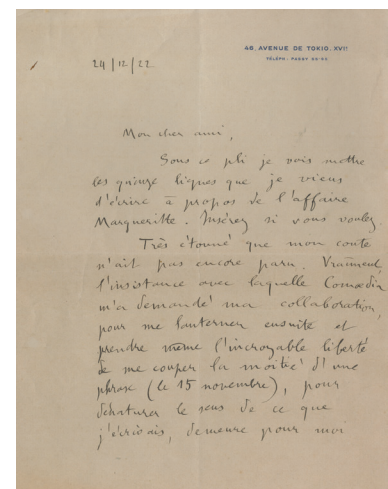 48, AVENUE DE TOKIO. XVI!
TÉLÉPH. PASSY
24/12/22
Mon cher ami,
Sous ce pli je vais mettre
les quinze lignes que je viens
d'écrire à propos de l'affaire
Margueritte. Insérez si vous voulez.
Très étonné que mon conte
n'ait pas encore paru. Vraiment,
l'insistance avec laquelle Comœdia
m'a demandé ma collaboration,
pour me lanterner ensuite et
prendre même l'incroyable liberté
de me couper la moitié d'une
phrase (le 15 novembre), pour
dénaturer le sens de ce que
j'écrivais, demeure pour moi